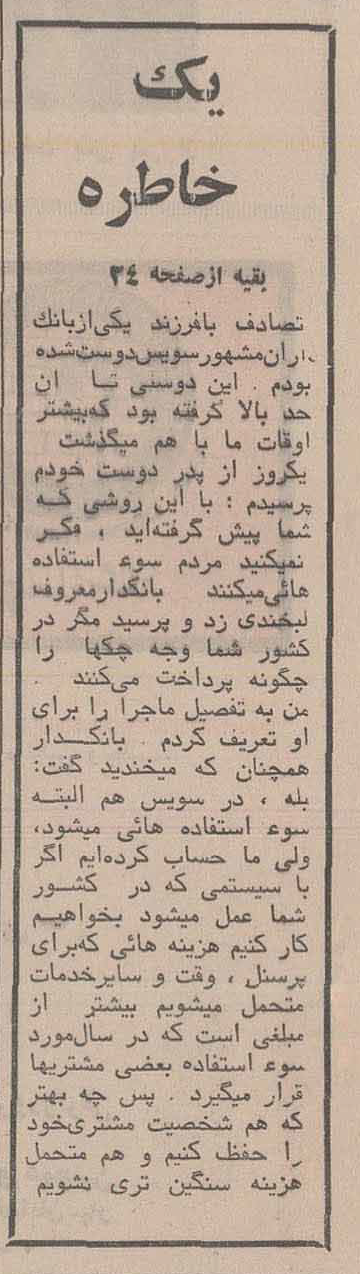 یک
خاطره
بقیه از صفحه ۳۴
تصادف بافرزند یکی‌ازبانك
داران‌مشهورسویس‌دوست‌شده
بودم . این دوستی تــا ان
حد بالا گرفته بود که‌بیشتر
اوقات ما با هم میگذشت
یکروز از پدر دوست خودم
پرسیدم : با این روشی کــه
شما پیش گرفته‌اید ، فکــر
نمیکنید مردم سوء استفاده
هائی‌میکنند بانکدارمعروف
لبخندی زد و پرسید مگر در
کشور شما وجه چکها را
چگونه پرداخت می‌کنند .
من به تفصیل ماجرا را برای
او تعریف کردم . بانکــدار
همچنان که میخندید گفت:
بله ، در سویس هم البتــه
سوء استفاده هائی میشود،
ولی ما حساب کرده‌ایم اگر
با سیستمی که در کشــور
شما عمل میشود بخواهیــم
کار کنیم هزینه هائی که‌برای
پرسنل ، وقت و سایرخدمات
متحمل میشویم بیشتر از
مبلغی است که در سال‌مورد
سوء استفاده بعضی مشتریها
قرار میگیرد . پس چه بهتر
که هم شخصیت مشتری‌خود
را حفظ کنیم و هم متحمل
هزینه سنگین تری نشویم